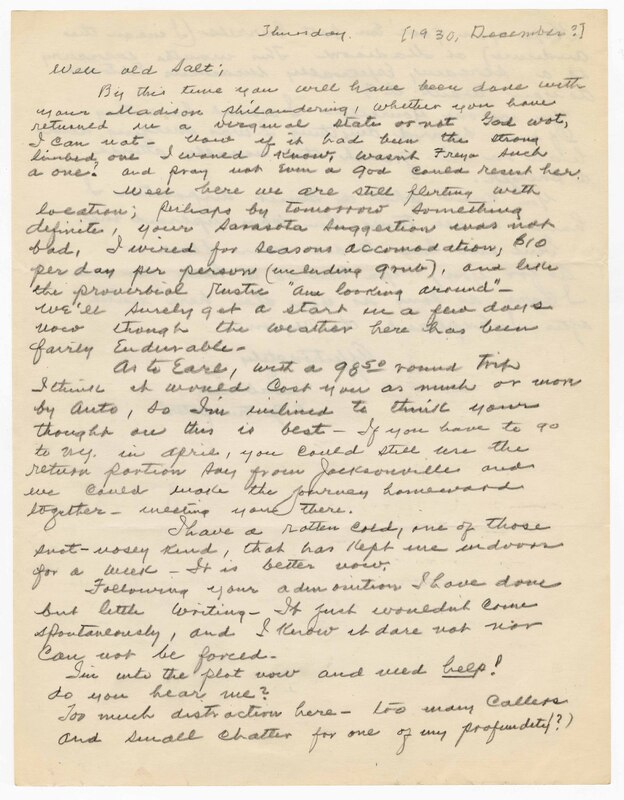 Thursday. [1930, December?]
Well old Salt;
By this time you will have been done with
your Madison philandering, whether you have
returned in a virginal state or not God wot,
I can not - Now if it had been the strong
limbed one I would know, wasn't Freya such
a one? and pray not even a God could resist her.
Well here we are still flirting with
location; perhaps by tomorrow something
definite, your Sarasota suggestion was not
bad, I wired for seasons accomodation, $10
per day per person (including grub), and like
the proverbial rustic "am looking around" -
We'll surely get a start in a few days
now though the weather here has been
fairly Endurable -
As to Earl, with a 98.50 round trip
I think it would cost you as much or more
by auto, so I'm inclined to think your
thought on this is best - If you have to go
to NY. in april, you could still use the
return portion say from Jacksonville and
we could make the journey homeward
together - meeting you there.
I have a rotten cold, one of those
snot-nosey kind, that has kept me indoors
for a week - It is better now.
Following your admonition I have done
but little writing - It just wouldn't come
spontaneously, and I know it dare not nor
can not be forced -
I'm into the plot now and need help!
do you hear me?
Too much distraction here - too many callers
and small chatter for one of my profundity(?)